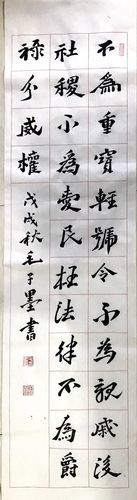 不為重寶輕號令不為親戚後
社稷不為愛民枉法律不為爵
祿分威權
戊戌秋毛子墨書